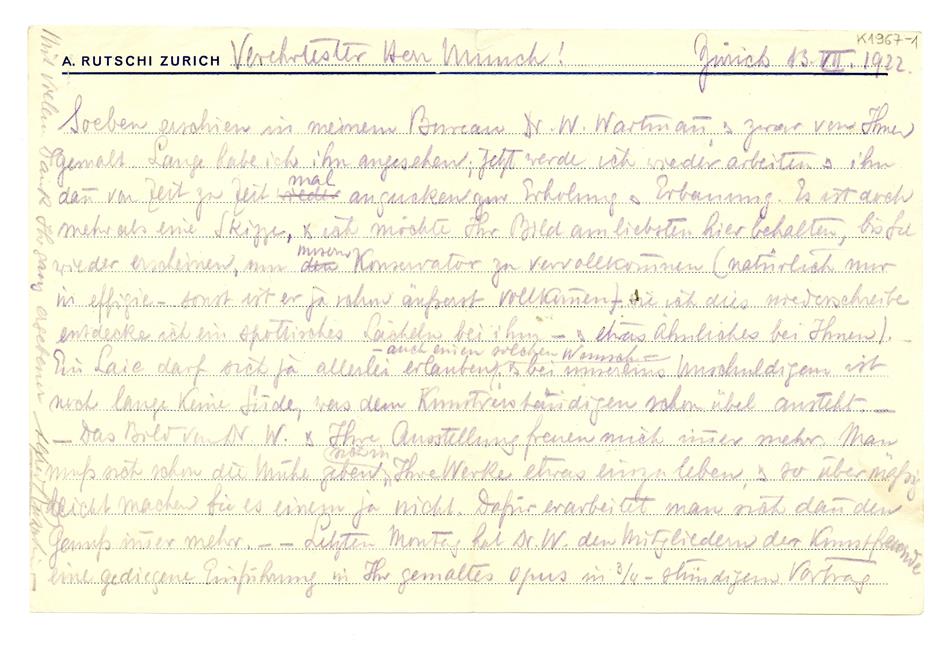 K1967-1
A. RUTSCHI ZURICH Verehrtester Herr Munch! Zürich 13. VII. 1922.
Soeben erschien in meinem Bureau Dr. W. Wartmann, & zwar von Ihnen
gemalt. Lange habe ich ihn angesehen; jetzt werde ich wieder arbeiten & ihn
mal
dann von Zeit zu Zeit wieder angucken zur Erholung & Erbauung. Es ist doch
mehr als eine Skizze, & ich möchte Ihr Bild am liebsten hier behalten, bis Sie
unsern
wieder erscheinen, um den Konservator zu vervollkommnen (natürlich nur
in effigie – sonst ist er ja schon äußerst vollkommen). Wie ich dies niederschreibe
entdecke ich ein spöttisches Lächeln bei ihm – & etwas ähnliches bei Ihnen). –
– auch einen solchen Wunsch –
Ein Laie darf sich ja allerlei erlauben, & bei unsereins Unschuldigem ist
noch lange keine Sünde, was dem Kunstverständigen schon übel ansteht. –
– Das Bild von Dr. W. & Ihre Ausstellung freuen mich immer mehr. Man
sich in
muß sich schon die Mühe geben, Ihre Werke etwas einzuleben, & so übermäßig
leicht machen Sie es einem ja nicht. Dafür erarbeitet man sich dann den
Genuß immer mehr. – – Letzten Montag hat Dr. W. den Mitgliedern der Kunstfreunde
eine gediegene Einführung in Ihr gemaltes Opus in 3/4-stündigem Vortrag
Mit vielem Dank Ihr ganz ergebener